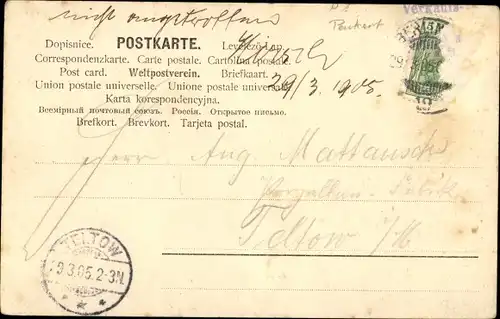 nicht angetroffen
Dopisnice. POSTKARTE. Levelező-Lap.
Correspondenzkarte. Carte postale. Cartolina postale.
Post card. Weltpostverein. Briefkaart.
Union postale universelle. Unione postale universale
29/3. 1905.
Karta korespondencyjna.
Всемірный почтовый союзъ. Россія. Открытое письмо.
Brefkort. Brevkort. Tarjeta postal.
Herrn Aug Mattausch
Teltow
TELTOW
3.05.2-3N.